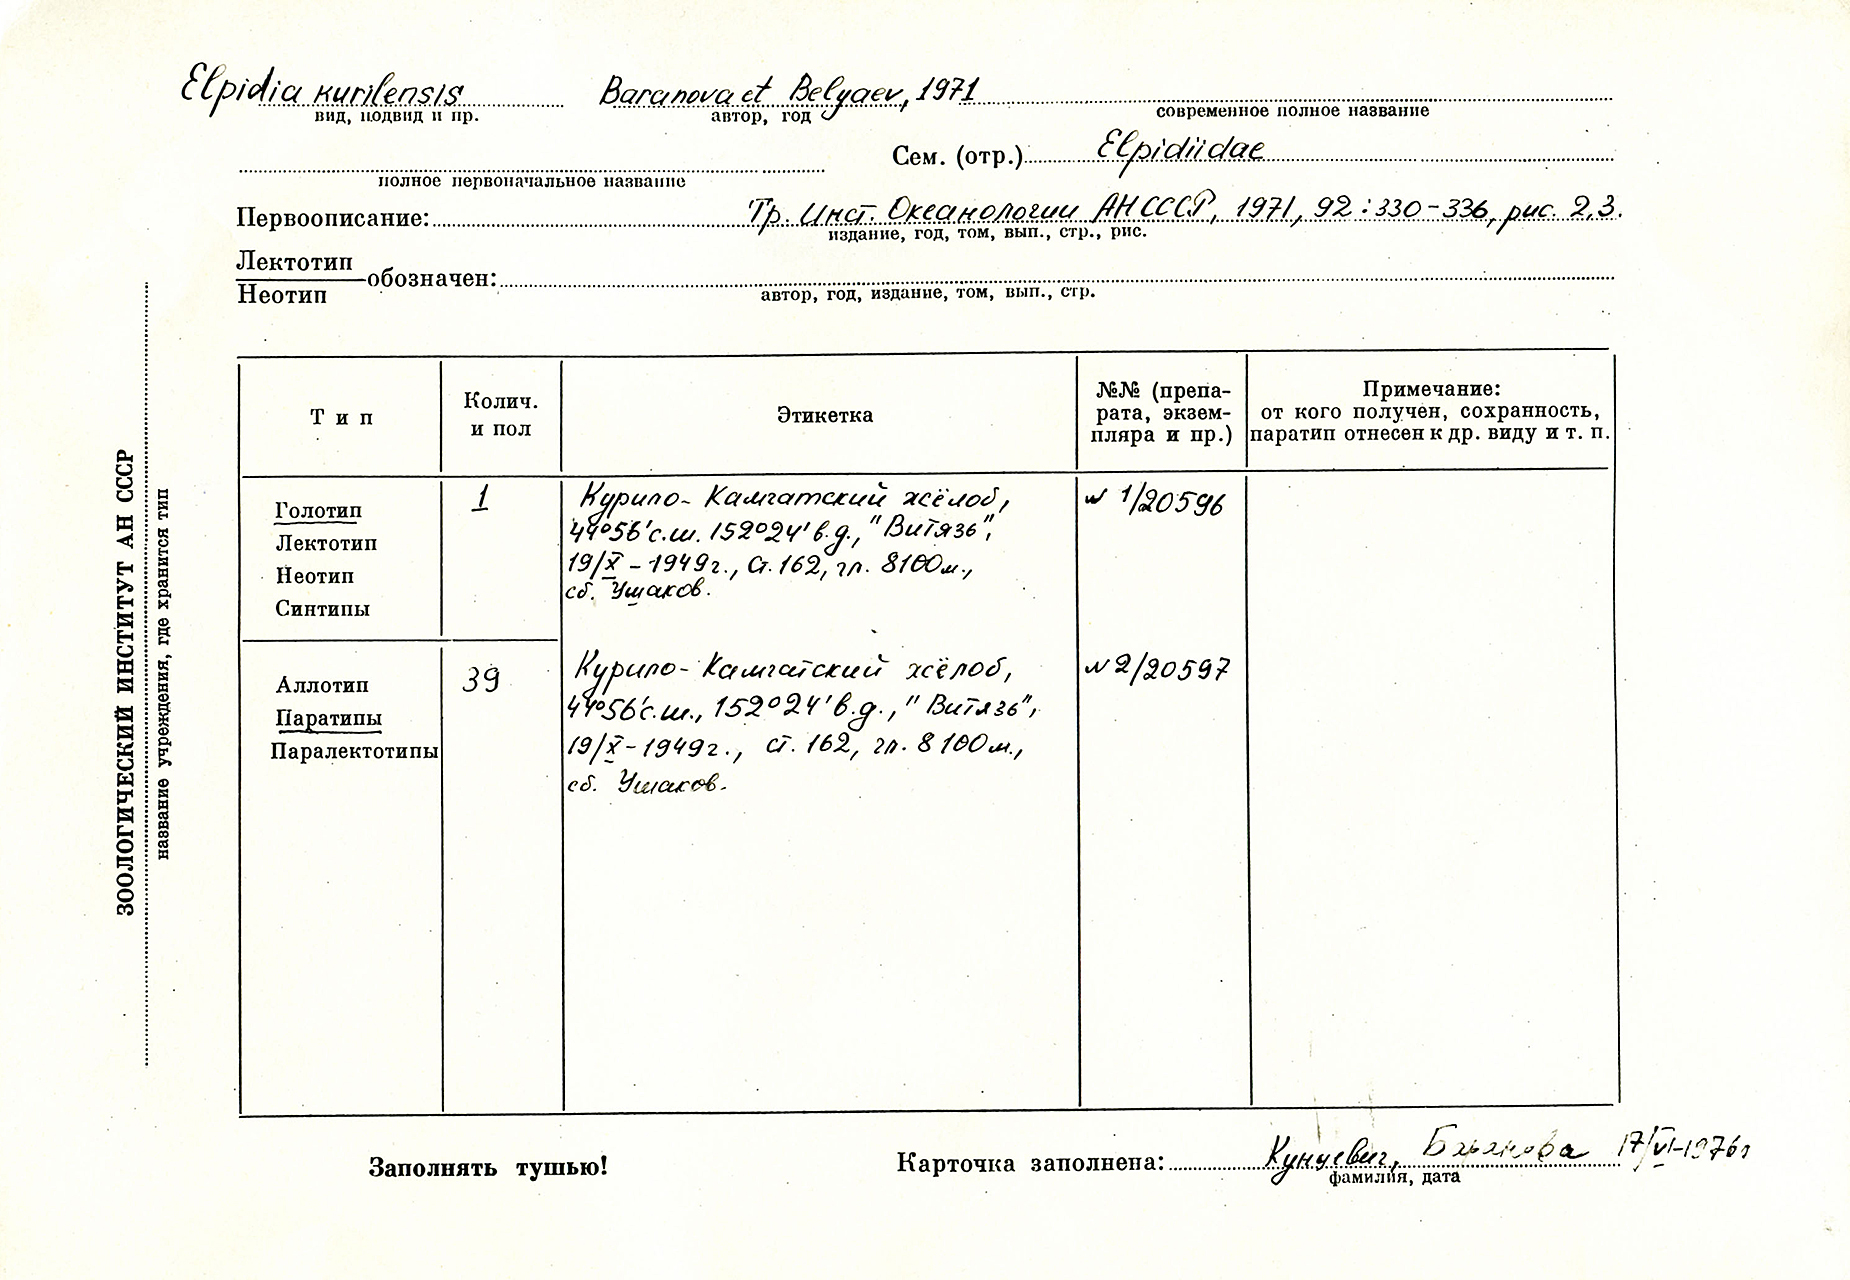 Elpidia kurilensis Baranova et Belyaev, 1971
вид, подвид и пр. автор, год современное полное название
Сем. (отр.) Elpidiidae
полное первоначальное название
Первоописание: Тр. Инст. Океанологии АН СССР, 1971, 92:330-336, рис. 2,3.
издание, год, том, вып., стр., рис.
Лектотип
Неотип
обозначен:
автор, год, издание, том, вып., стр.
ЗООЛОГИЧЕСКИЙ ИНСТИТУТ АН СССР
название учреждения, где хранится тип
Тип
Колич.
и пол
Этикетка
№№ (препа-
рата, экзем-
пляра и пр.)
Примечание:
от кого получен, сохранность,
паратип отнесен к др. виду и т. п.
Голотип
Лектотип
Неотип
Синтипы
1
Курило-Камчатский жёлоб,
44°56'с.ш. 152°24'в.д., "Витязь",
19/X-1949г., ст. 162, гл. 8100м.,
сб. Ушаков.
№ 1/20596
Аллотип
Паратипы
Паралектотипы
39
Курило-Камчатский жёлоб,
44°56'с.ш., 152°24'в.д., "Витязь",
19/X-1949г., ст. 162, гл. 8100м.,
сб. Ушаков.
№ 2/20597
Заполнять тушью!
Карточка заполнена: Баранова 17/VI-1976г
фамилия, дата